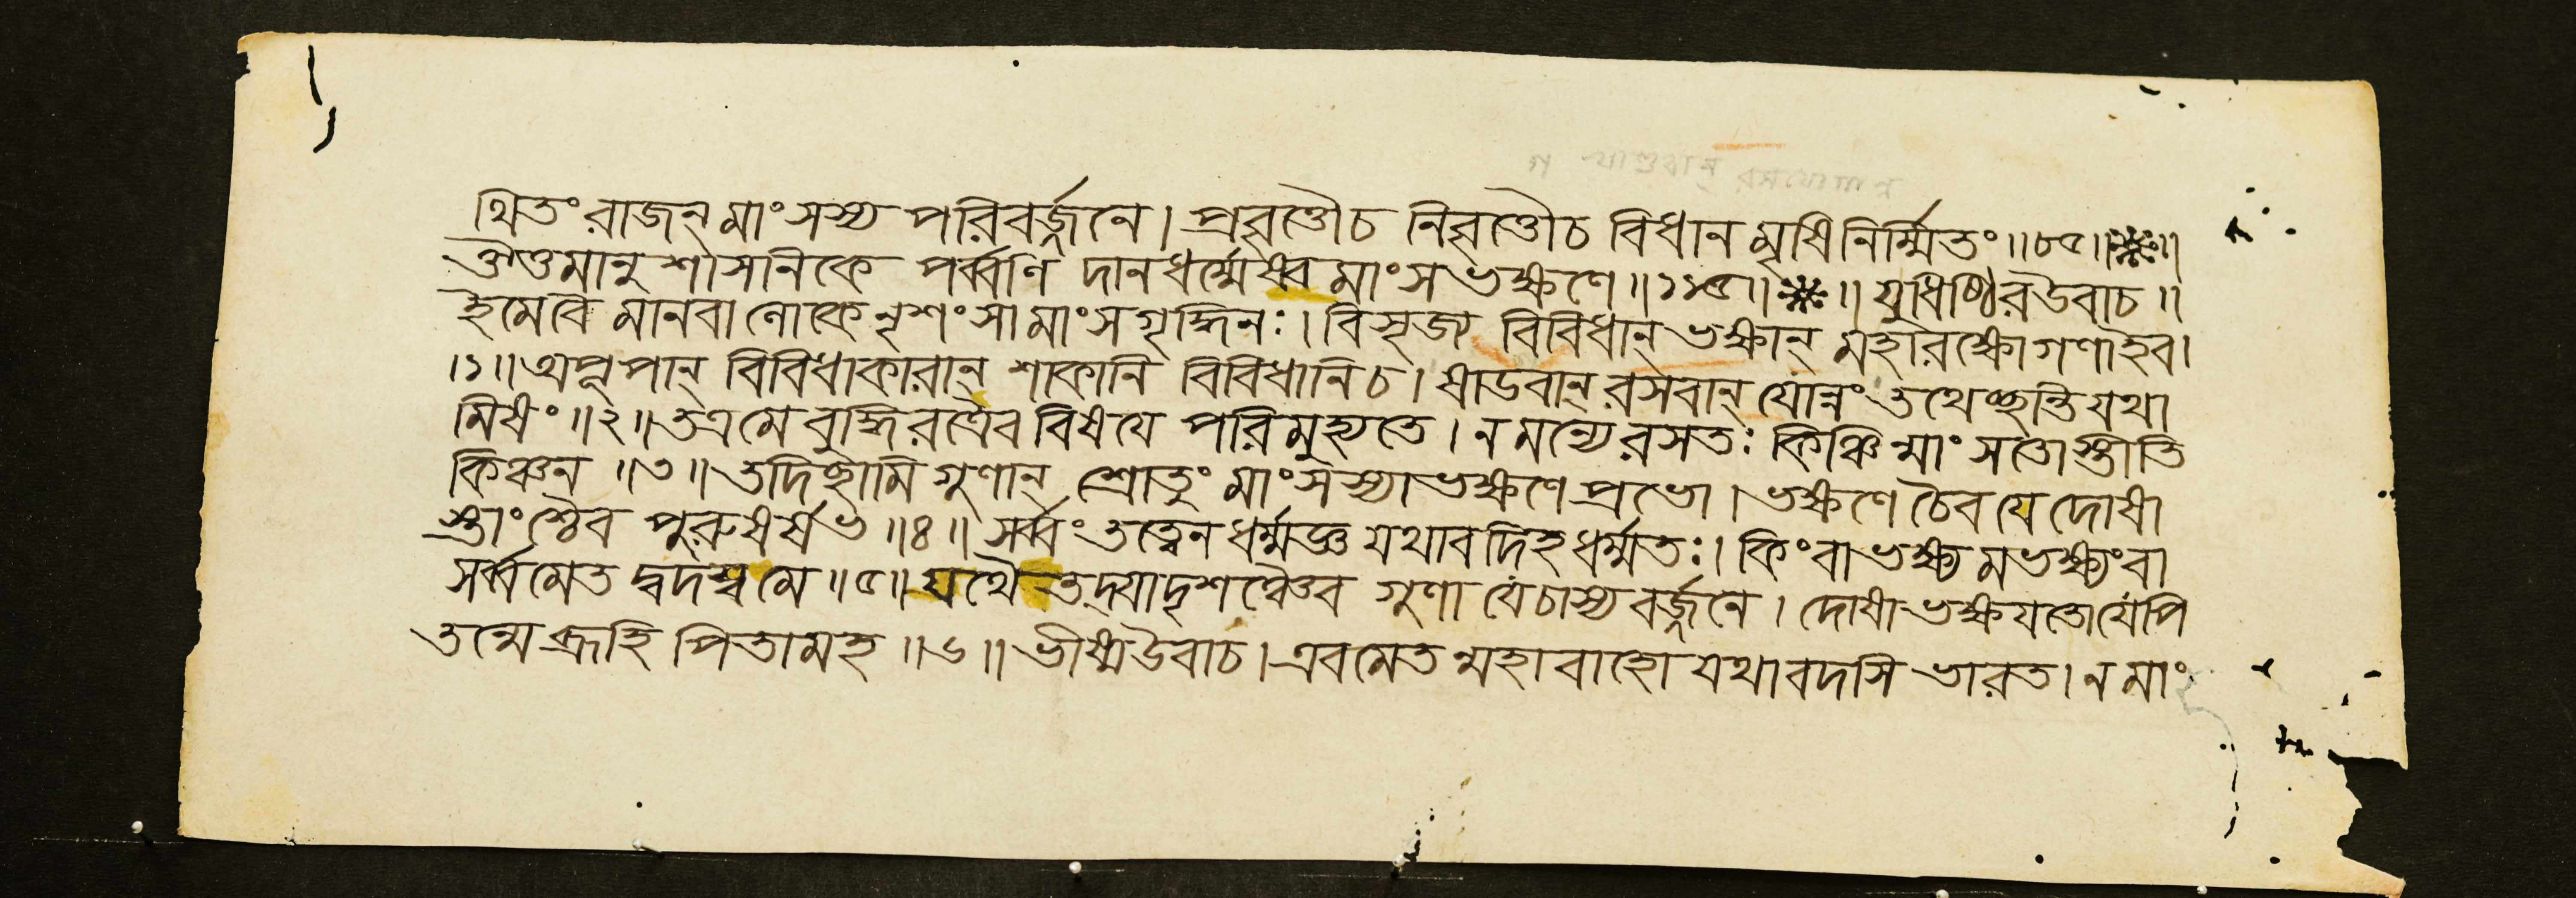 থিতং রাজন্ মাংসস্য পরিবর্জ্জনে। প্রবৃত্তৌচ নিবৃত্তৌচ বিধান মৃষিনির্ম্মিতং ॥৮৫॥*॥
ঔত্তমানুশাসনিকে পর্ব্বণি দানধর্ম্মেষ্বব মাংসভক্ষণে ॥১১৫॥*॥ যুধিষ্ঠিরউবাচ ॥
ইমেবৈ মানবা লোকে নৃশংসা মাংসগৃদ্ধিনঃ। বিসৃজ্য বিবিধান্ ভক্ষান্ মহারক্ষোগণাইব।
।১॥ অপূপান্ বিবিধাকারান্ শাকানি বিবিধানিচ। ষাডবান্ রসবান্ যোন্নং তথেচ্ছন্তি যথা
মিষং ॥২॥ তত্রমে বুদ্ধিরত্রৈব বিষযে পরিমুহ্যতে। ন মন্যে রসতঃ কিঞ্চিন্মাংসতোস্তীতি
কিঞ্চন ॥৩॥ তদিচ্ছামি গুণান্ শ্রোতুং মাংসস্যাভক্ষণে প্রভো। ভক্ষণে চৈব যে দোষা
স্তাংশ্চৈব পুরুষর্ষভ ॥৪॥ সর্ব্বং তত্ত্বেন ধর্ম্মজ্ঞ যথাবদিহ ধর্ম্মতঃ। কিংবা ভক্ষ্যমভক্ষ্যংবা
সর্ব্বমেত দ্বদস্ব মে ॥৫॥ যথৈতদ্যাদৃশঞ্চৈব গুণা যেচাস্য বর্জ্জনে। দোষা ভক্ষযতো যেপি
তন্মে ব্রূহি পিতামহ ॥৬॥ ভীষ্মউবাচ। এবমেত ন্মহাবাহো যথাবদসি ভারত। ন মাং